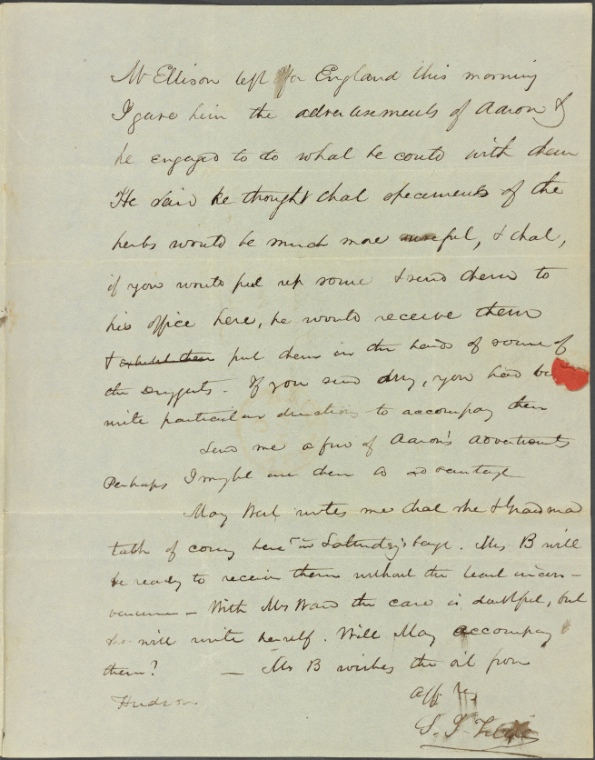 Mr Ellison left for England this morning
I gave him the advertisements of Aaron &
he engaged to do what he could with them
He said he thought that speciments of the
herbs would be much more useful, & that,
if you would put up some & send them to
his office here, he would receive them
& exhibit them put them in the hands of some of
the druggists. If you send any, you had
write particular directions to accompany them
Send me a few of Aaron's Advertisents
Perhaps I might use them to advantage
May writes me that she & Grandma
talk of coming here in Saturday's . Mrs B will
be ready to receive them without the least incon-
venience - With Mrs Ward the case is doubtful, but
she will write herself. Will May accompany
them? — Mrs B wishes the oil from
Hudson.
Aff Yrs